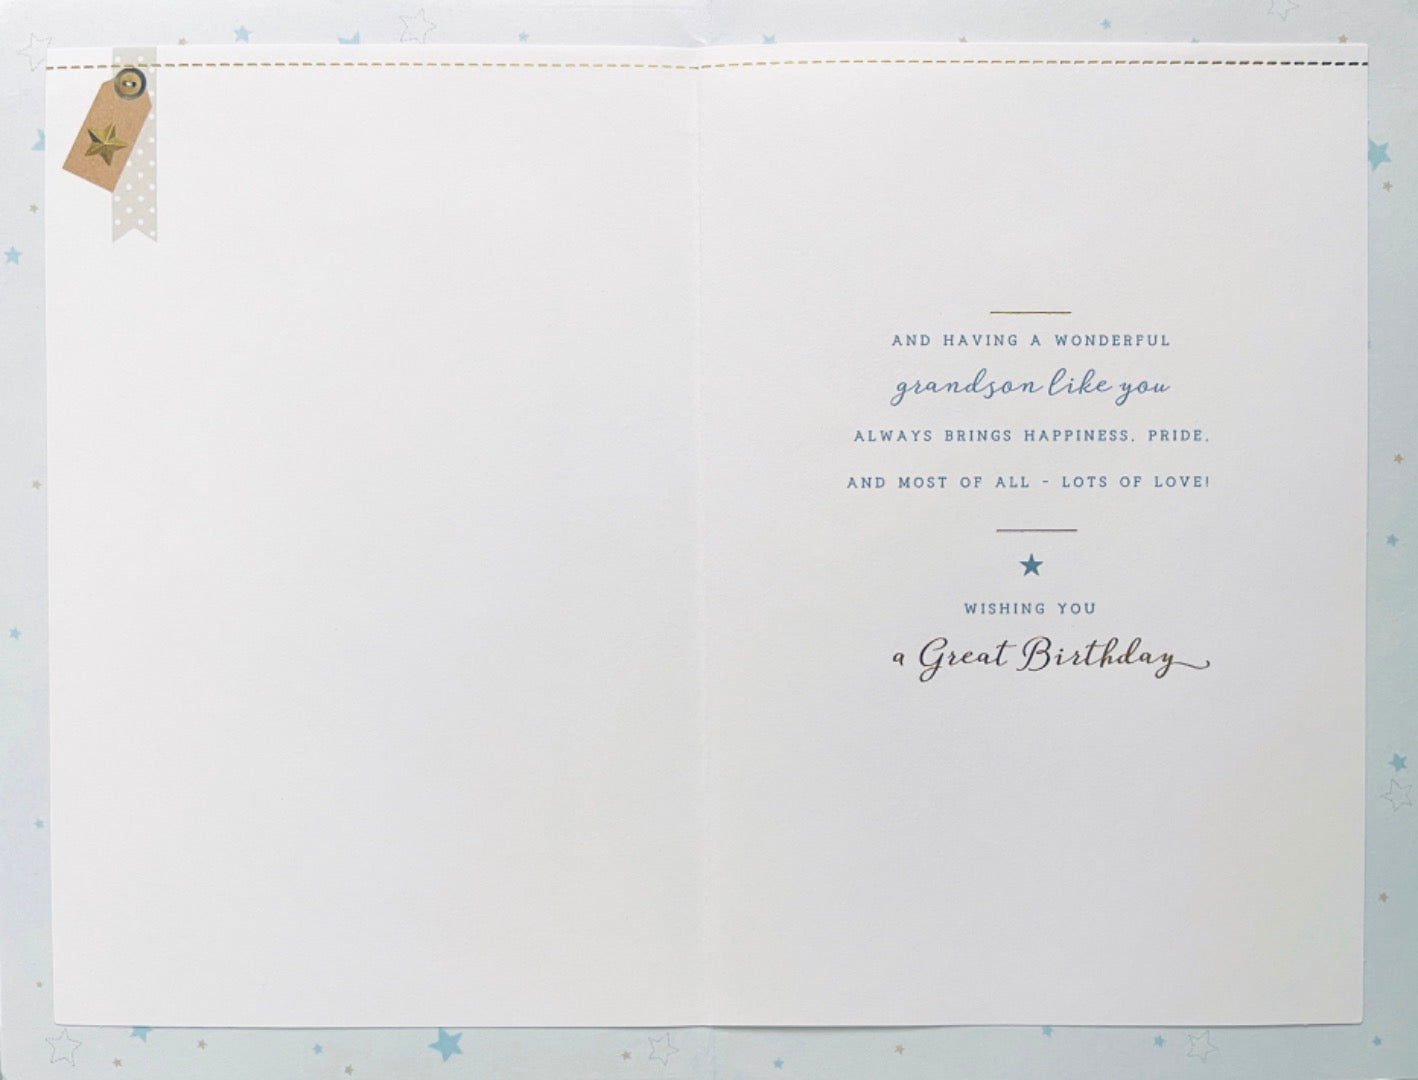 AND HAVING A WONDERFUL
grandson like you
ALWAYS BRINGS HAPPINESS, PRIDE,
AND MOST OF ALL - LOTS OF LOVE!
WISHING YOU
a Great Birthday